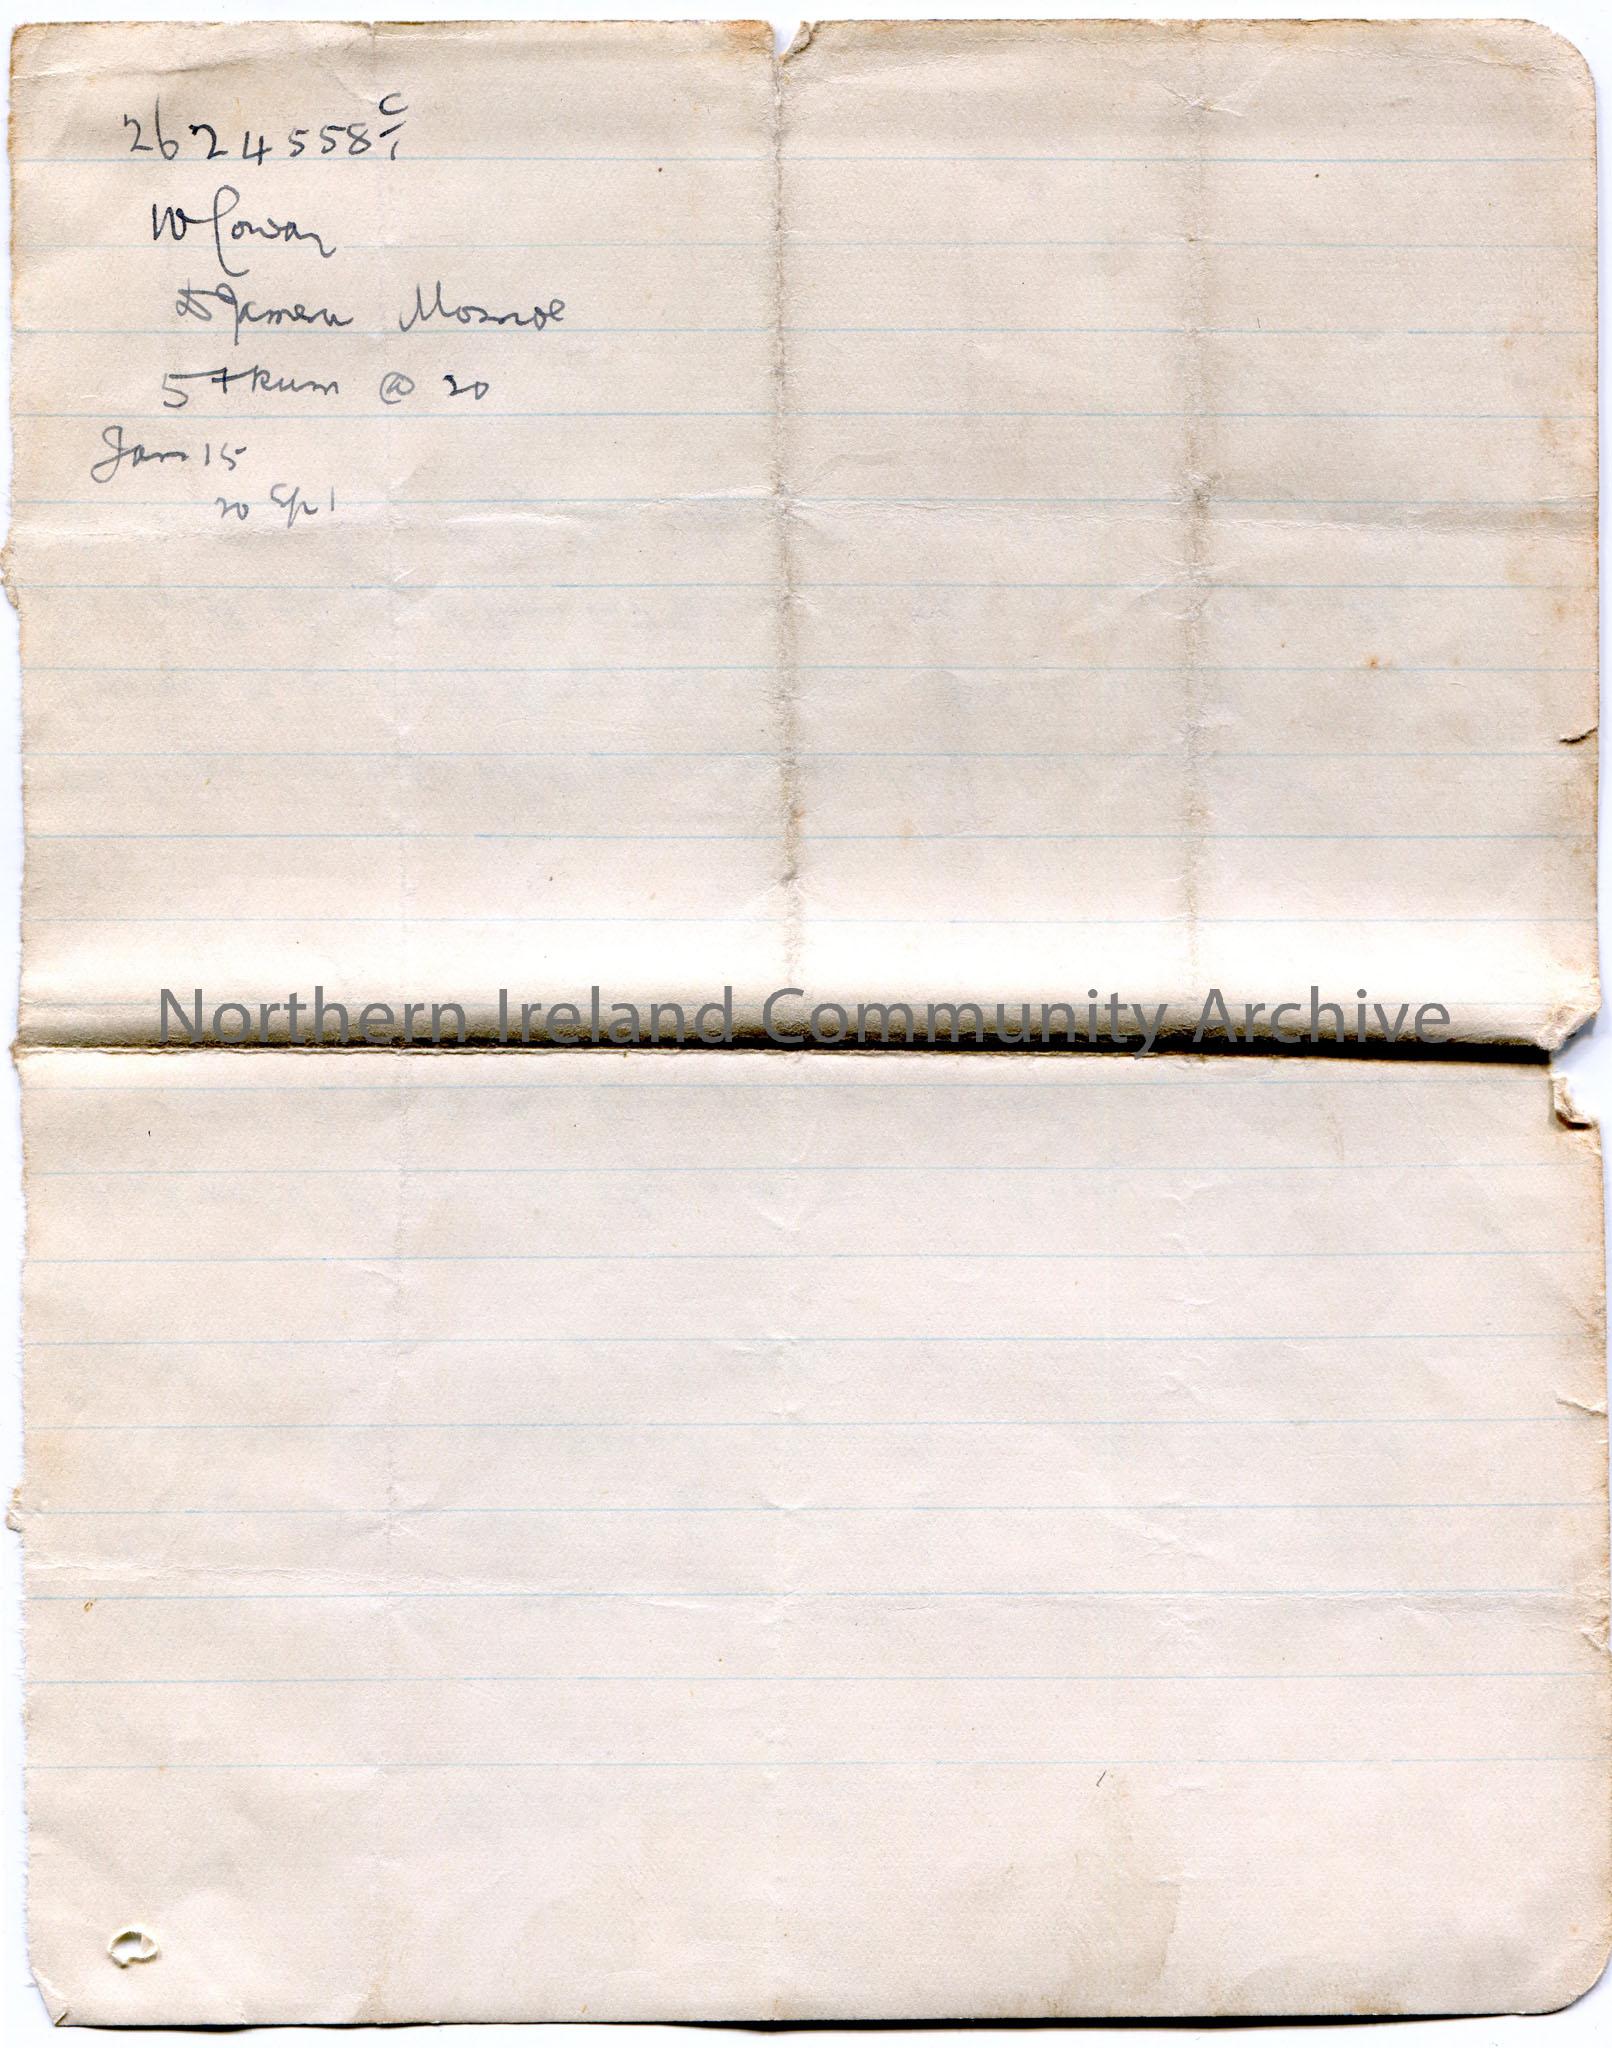 2624558 C/1
W Cowan
James Monroe
5 Rum @ 20
Jan 15
20
Northern Ireland Community Archive